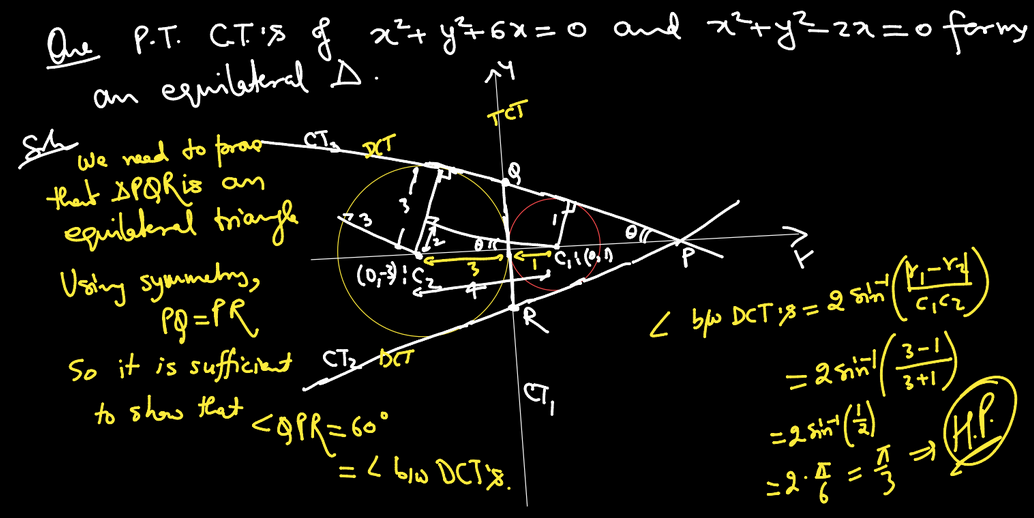 Que P.T. C.T.'s of x²+y²+6x=0 and x²+y²-2x=0 forms
an equilateral Δ.
Y
TCT
Soln
We need to prove
that ΔPQR is an
equilateral triangle
Using symmetry,
PQ=PR
So it is sufficient
to show that <QPR=60°
= < b/w DCT's.
CT₃
DCT
Q
3
3
2
1
θ
θ
P
X
(0,-3) : C₂
3
1
C₁ : (0,1)
4
R
CT₂
DCT
CT₁
< b/w DCT's = 2 sin⁻¹(r₁-r₂/C₁C₂)
= 2 sin⁻¹(3-1/3+1)
= 2 sin⁻¹(1/2)
= 2·π/6 = π/3 ⇒ H.P.